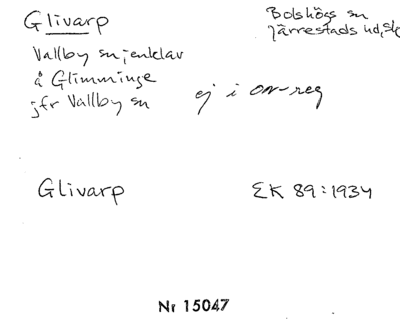 Glivarp
Bolshögs sn
Järrestads hd, Sk
Vallby sn; enklav
å Glimminge
jfr Vallby sn
ej i on-reg
Glivarp
EK 89:1934
Nr 15047